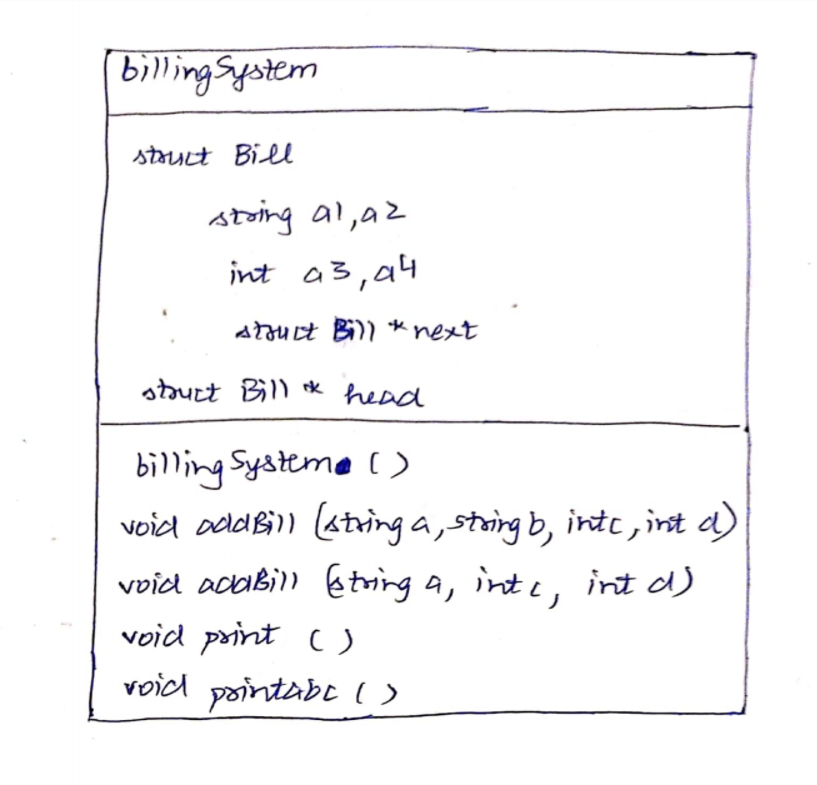 billingSystem
struct Bill
string a1, a2
int a3, a4
struct Bill * next
struct Bill * head
billingSystem ()
void addBill (string a, string b, int c, int d)
void addBill (string a, int c, int d)
void print ()
void printabc ()